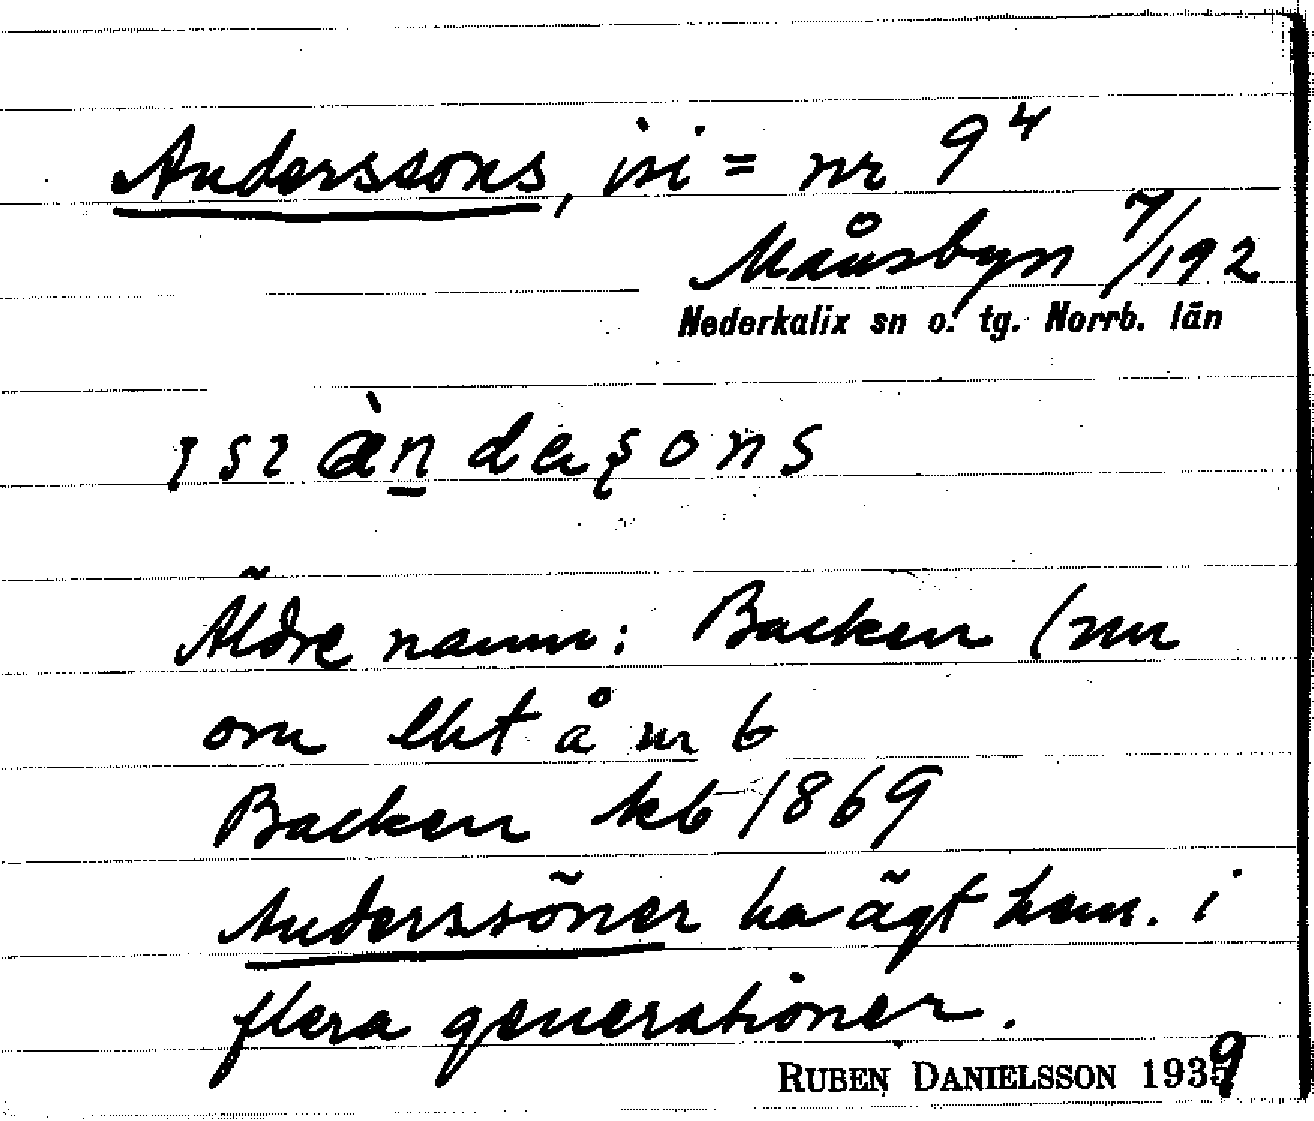 Anderssons, isi = nr 9⁴
Månsbyn 7/192
Nederkalix sn o. tg. Norrb. län
Äldre namn: Backen (nu
om lht å nr 6
Backen kb 1869
Anderssöner ha ägt hem. i
flera generationer.
RUBEN DANIELSSON 1939